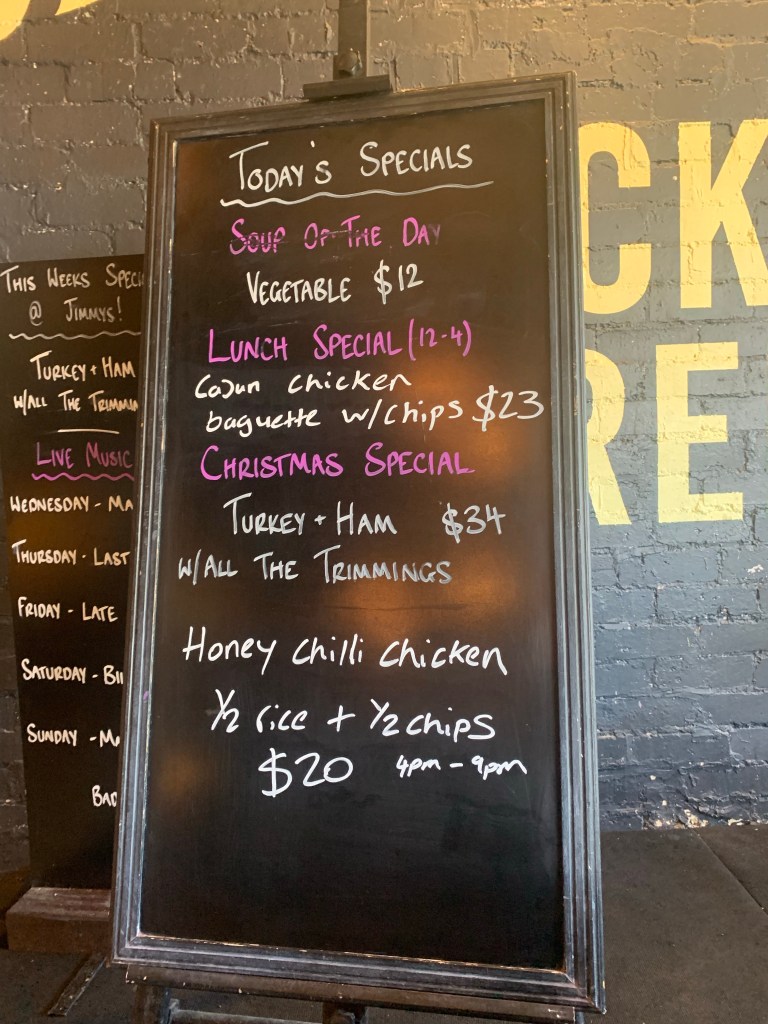 TODAY'S SPECIALS
SOUP OF THE DAY
VEGETABLE $12
LUNCH SPECIAL (12-4)
Cajun chicken
baguette w/chips $23
CHRISTMAS SPECIAL
TURKEY + HAM $34
W/ALL THE TRIMMINGS
Honey chilli chicken
1/2 rice + 1/2 chips
$20 4pm - 9pm
THIS WEEKS SPECI
@ JIMMYS!
TURKEY + HAM
W/ALL THE TRIMMIN
LIVE MUSIC
WEDNESDAY - MA
THURSDAY - LAST
FRIDAY - LATE
SATURDAY - BI
SUNDAY - MA
BAD
CK
RE